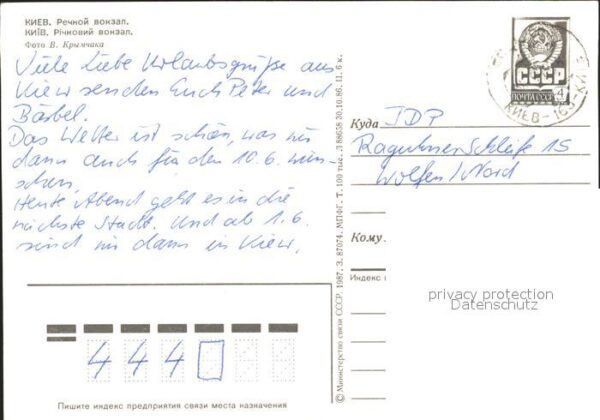 КИЕВ. Речной вокзал.
КИЇВ. Річковий вокзал.
Фото В. Крымчака
Viele liebe Urlaubsgrüße aus
Kiew senden Euch Peter und
Bärbel.
Das Wetter ist schön, was wir
dann auch für den 10.6. wün-
schen.
Heute Abend geht es in die
nächste Stadt. Und ab 1.6.
sind wir dann in Kiew.
© Министерство связи СССР. 1987. З. 87074. МПФГ. Т. 100 тыс. Л 88658 30.10.86. Ц. 6 к.
СССР
ПОЧТА СССР
4
КИЕВ
Куда JDP
Raguhner Schleife 15
Wolfen/Nord
Кому
Индекс
privacy protection
Datenschutz
444
Пишите индекс предприятия связи места назначения